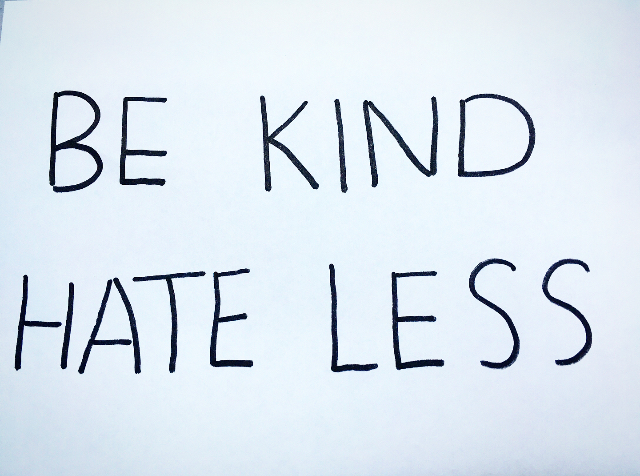 BE KIND
HATE LESS